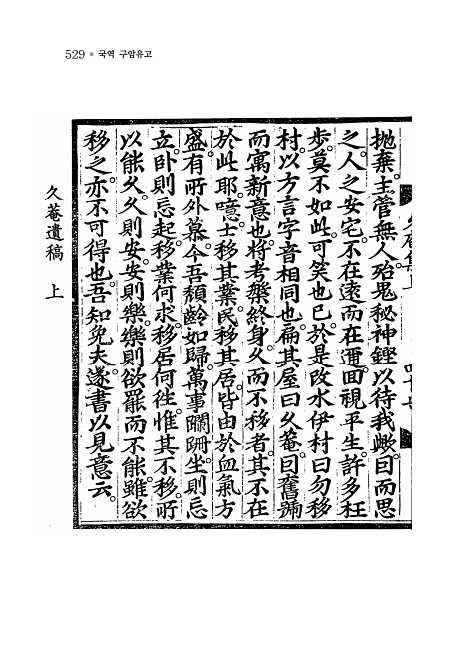 529 ● 국역 구암유고
抛棄。主管無人。殆鬼秘神鏗以待我歟。因而思
之。人之安宅。不在遠而在邇。回視平生。許多枉
步。莫不如此。可笑也已。於是改水伊村曰勿移
村。以方言字音相同也。扁其屋曰久菴。因舊號
而寓新意也。將考槃終身。久而不移者。其不在
於此耶。噫。士移其業。民移其居。皆由於血氣方
盛。有所外慕。今吾頹齡如歸。萬事闌珊。坐則忘
立。卧則忘起。移業何求。移居何往。惟其不移。所
以能久。久則安。安則樂。樂則欲罷而不能。雖欲
移之。亦不可得也。吾知免夫。遂書以見意云。
久菴遺稿 上